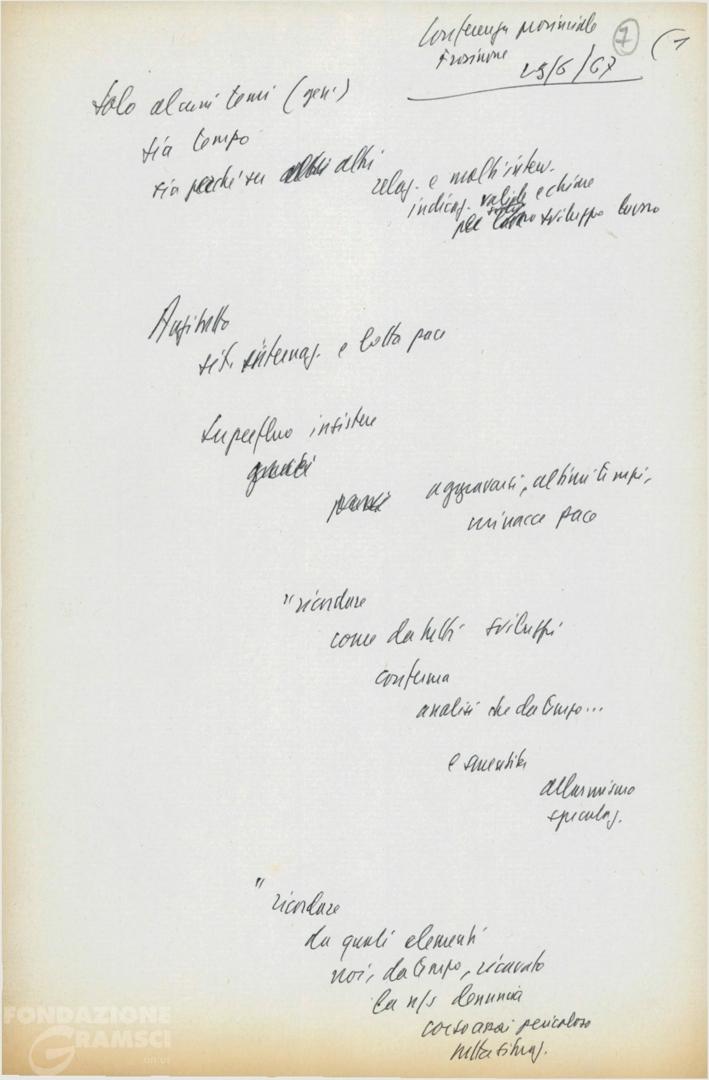 Conferenza provinciale
Frosinone
7
(1
25/6/67
Solo alcuni temi (gen.)
sia tempo
sia perché su altri
relaz. e molti interv.
indicaz. valide e chiare
per sviluppo lavoro
Anzitutto
sit. internaz. e lotta pace
Superfluo insistere
aggravarsi, ultimi tempi,
minacce pace
" ricordare
come da tutti sviluppi
conferma
analisi che da tempo...
e smentita
allarmismo
speculaz.
" ricordare
da quali elementi
noi, da tempo, ricavato
la n/s denuncia
corso assai pericoloso
nella situaz.
FONDAZIONE
GRAMSCI